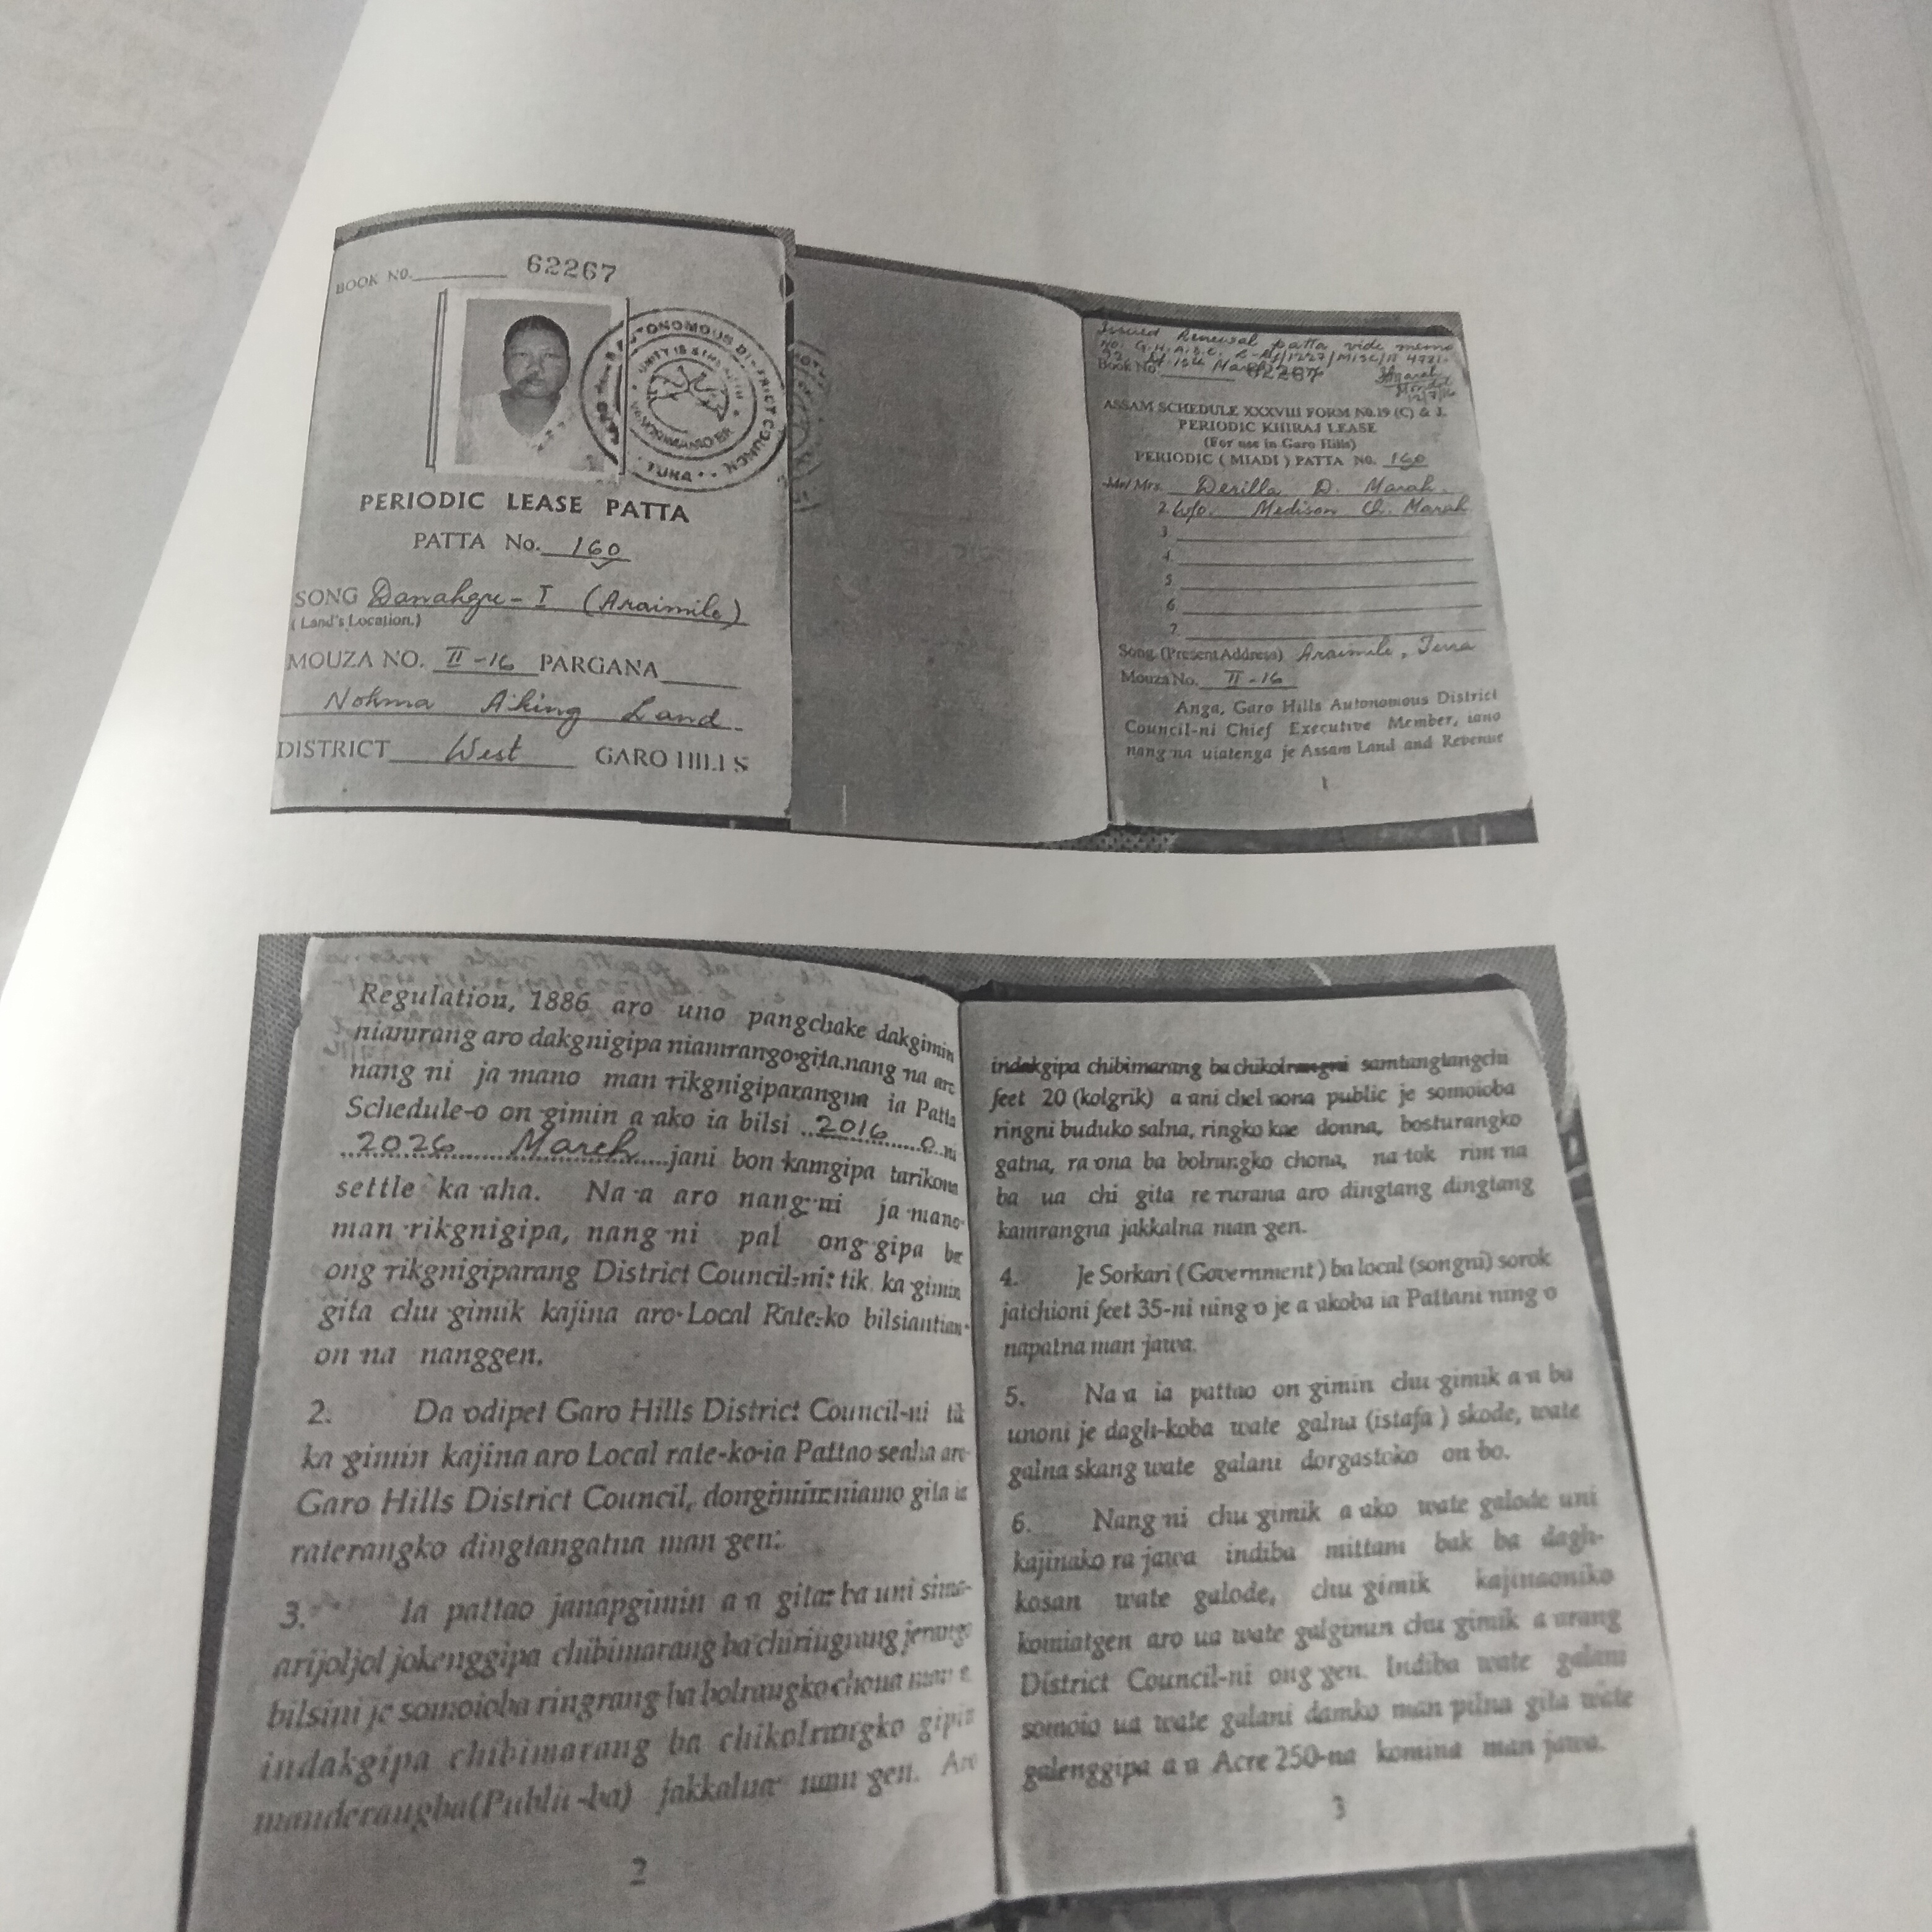 BOOK NO. 62267
AUTONOMOUS DISTRICT COUNCIL
TURA
PERIODIC LEASE PATTA
PATTA No. 160
SONG Danakgre - I (Araimile)
(Land's Location.)
MOUZA NO. II-16 PARGANA
Nokma A·king Land
DISTRICT West GARO HILLS
Issued Renewal patta vide memo
Book No. 62267
ASSAM SCHEDULE XXXVIII FORM No.19 (C) & J.
PERIODIC KHIRAJ LEASE
(For use in Garo Hills)
PERIODIC ( MIADI ) PATTA No. 160
Mr/ Mrs. Derilla D. Marak
2. W/o. Medison Ch. Marak
3.
4.
5.
6.
7.
Song (Present Address) Araimile, Tura
Mouza No. II-16
Anga, Garo Hills Autonomous District
Council-ni Chief Executive Member, iano
nang·na uiatenga je Assam Land and Revenue
1
Regulation, 1886 aro uno pangchake dakgimin
niamrang aro dakgnigipa niamrango·gita nang·na aro
nang·ni ja·mano man·rikgnigiparangna ia Patta
Schedule-o on·gimin a·ako ia bilsi 2016 o ni
2026 March jani bon·kamgipa tarikona
settle ka·aha. Na·a aro nang·ni ja·mano
man·rikgnigipa, nang·ni pal ong·gipa ba
ong·rikgnigiparang District Council-ni tik ka·gimin
gita chu·gimik kajina aro Local Rate-ko bilsiantian
on·na nanggen.
2. Da·odipet Garo Hills District Council-ni tik
ka·gimin kajina aro Local rate-ko ia Pattao seaha aro
Garo Hills District Council, donggimin niamo gita ia
raterangko dingtangatna man·gen.
3. Ia pattao janapgimin a·a gita ba uni sima-
arijoljol jokenggipa chibimarang ba chiringrang jerango
bilsini je somoioba ringrang ba bolrangko chona man·a
indakgipa chibimarang ba chikolrangko gipin
manderangba (Public-ba) jakkalna man·gen. Aro
2
indakgipa chibimarang ba chikolrangni samtangtangchi
feet 20 (kolgrik) a·ani chel·aona public je somoioba
ringni buduko salna, ringko kae donna, bosturangko
gatna, ra·ona ba bolrangko chona, na·tok rim·na
ba ua chi gita re·rurana aro dingtang dingtang
kamrangna jakkalna man·gen.
4. Je Sorkari (Government) ba local (songni) sorok
jatchioni feet 35-ni ning·o je a·akoba ia Pattani ning·o
napatna man·jawa.
5. Na·a ia pattao on·gimin chu·gimik a·a ba
unoni je dagh-koba wate galna (istafa) skode, wate
galna skang wate galani dorgastoko on·bo.
6. Nang·ni chu·gimik a·ako wate galode uni
kajinako ra·jawa indiba mittam bak ba dagh-
kosan wate galode, chu·gimik kajinaoniko
komiatgen aro ua wate galgimin chu·gimik a·arang
District Council-ni ong·gen. Indiba wate galani
somoio ua wate galani damko man·pilna gita wate
galenggipa a·a Acre 250-na komina man·jawa.
3